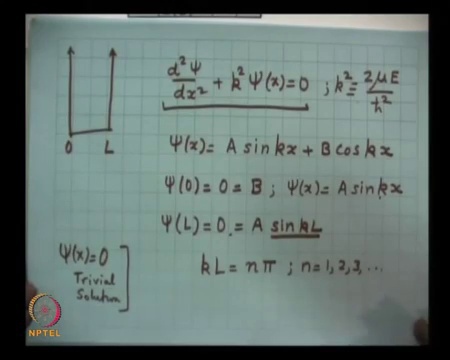 d²Ψ/dx² + k²Ψ(x)=0 ; k² = 2μE/ħ²
0 L
Ψ(x)= A sin kx + B cos kx
Ψ(0)=0 = B ; Ψ(x)= A sin kx
Ψ(L)=0 = A sin kL
Ψ(x)=0
Trivial
Solution
kL = nπ ; n=1,2,3,...
NPTEL